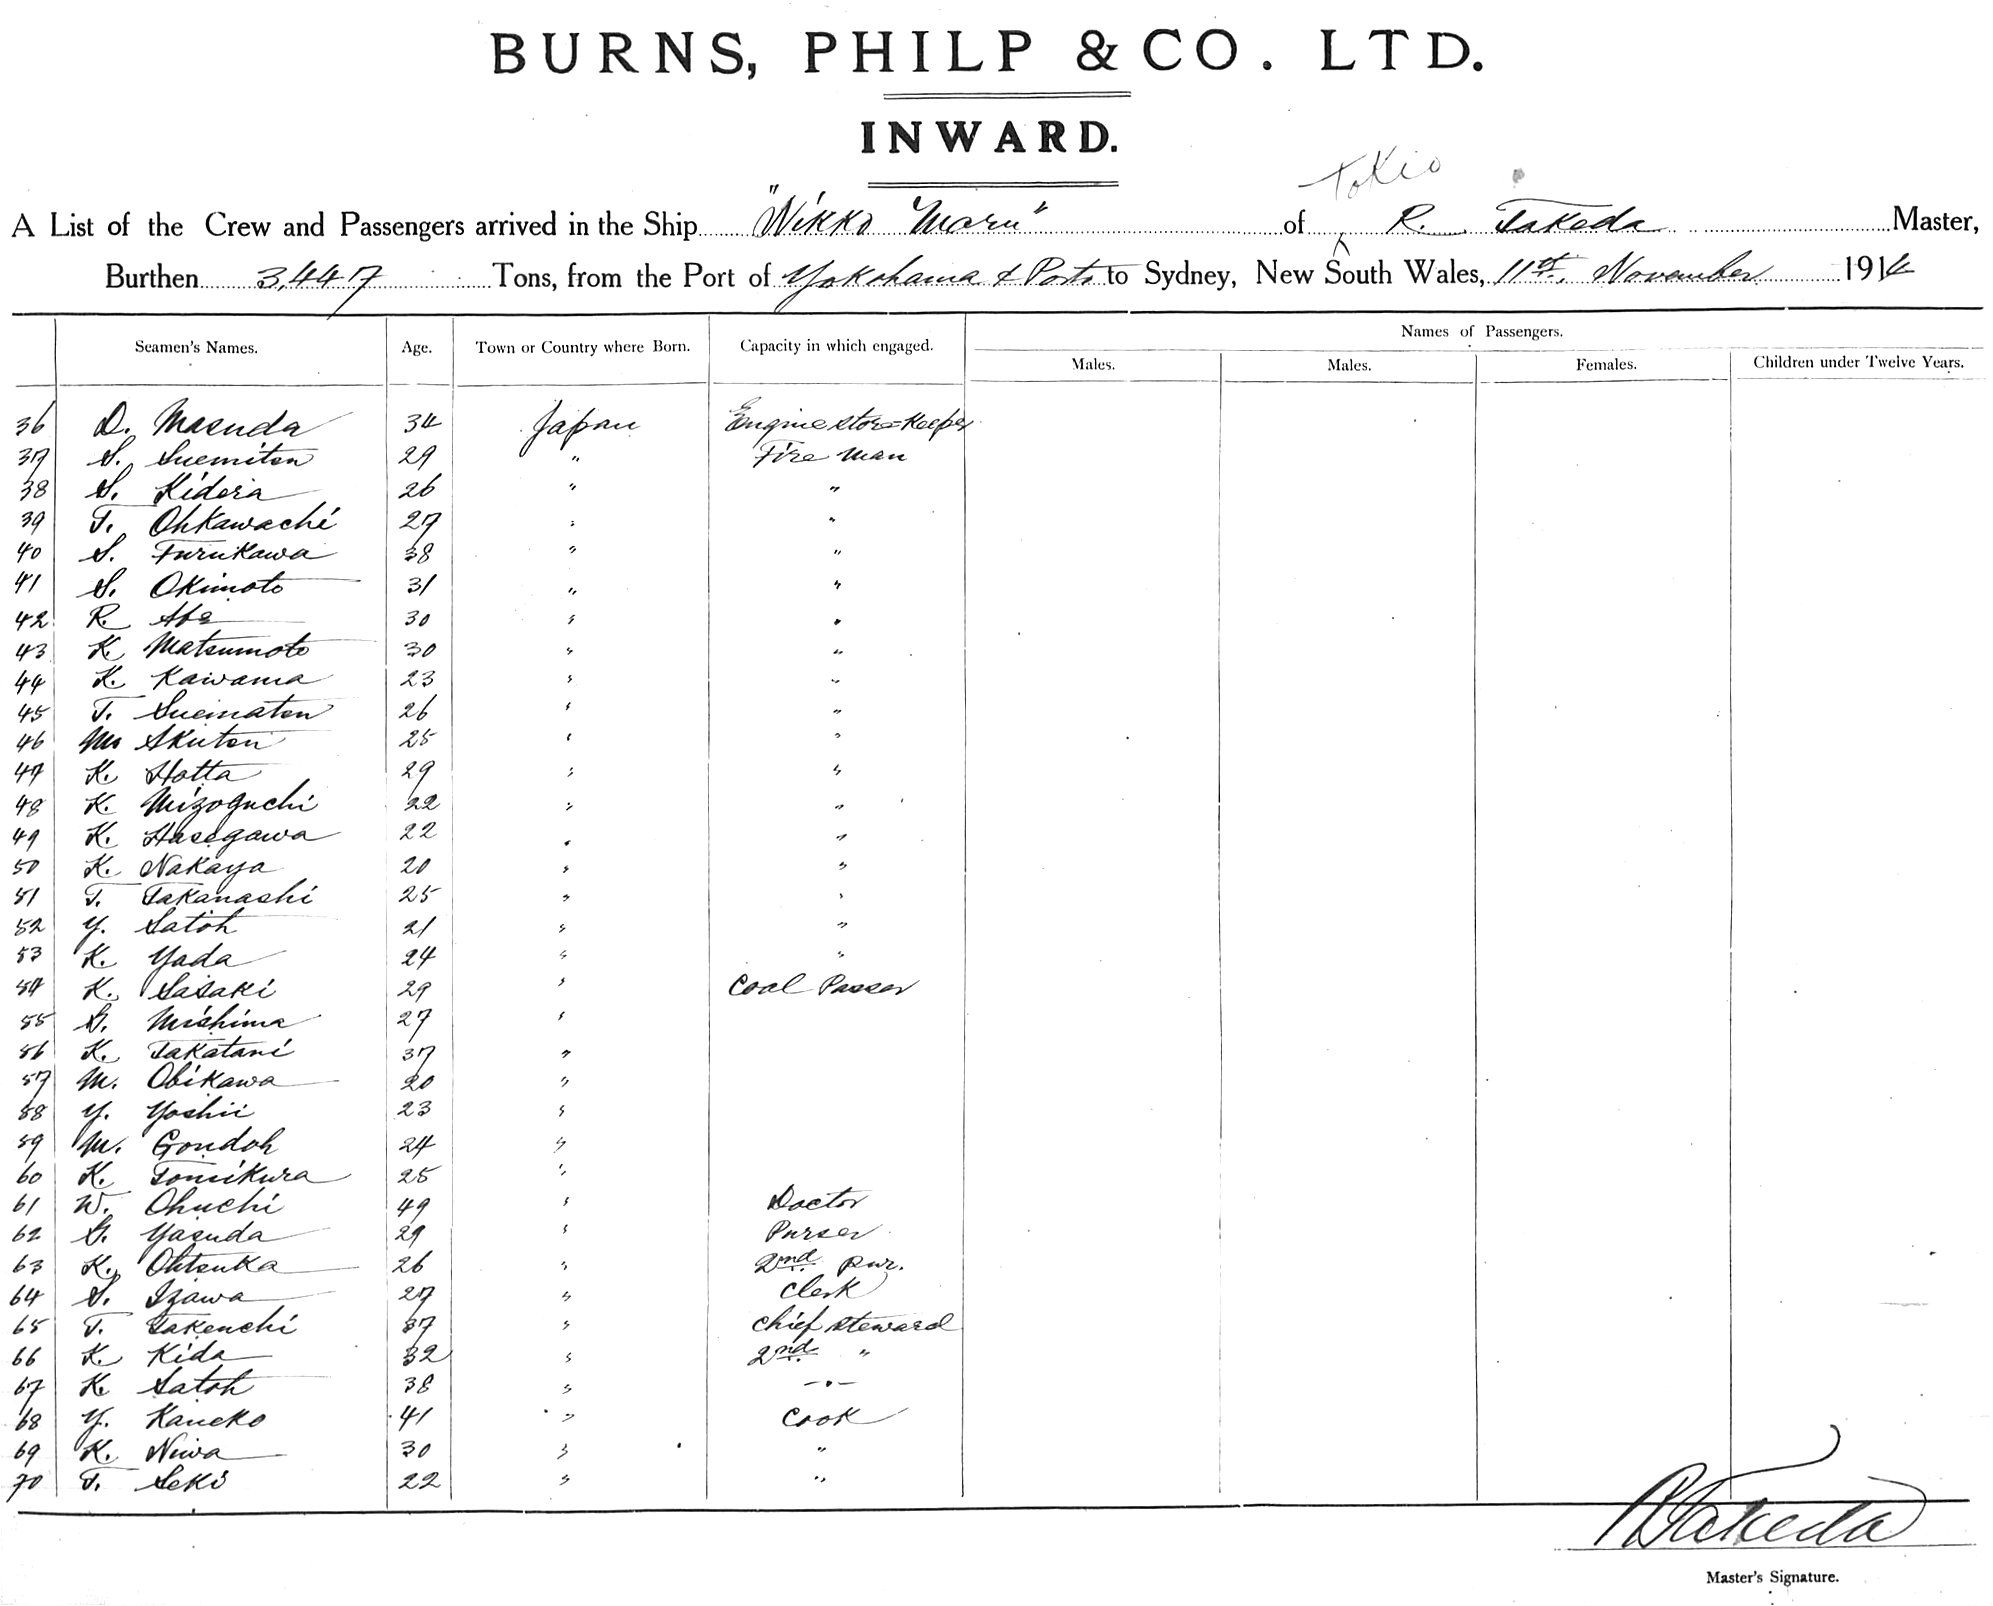 BURNS, PHILP & CO. LTD.
INWARD.
Tokio
A List of the Crew and Passengers arrived in the Ship "Nikko Maru" of R. Takeda Master,
Burthen 3,447 Tons, from the Port of Yokohama & Ports to Sydney, New South Wales, 11th. November 1914
Names of Passengers.
Seamen's Names. Age. Town or Country where Born. Capacity in which engaged. Males. Males. Females. Children under Twelve Years.
36 D. Masuda 34 Japan Engine store=keeper
37 S. Suemitsu 29 " Fire man
38 S. Kidera 26 " "
39 T. Ohkawachi 27 " "
40 S. Furukawa 38 " "
41 S. Okimoto 31 " "
42 R. Abe 30 " "
43 K. Matsumoto 30 " "
44 K. Kawama 23 " "
45 T. Suematsu 26 " "
46 M. 25 " "
47 K. Hotta 29 " "
48 K. Mizoguchi 22 " "
49 K. Hasegawa 22 " "
50 K. Nakaya 20 " "
51 T. Takanashi 25 " "
52 Y. Satoh 21 " "
53 K. Yada 24 " "
54 K. Sasaki 29 " Coal Passer
55 G. Mishima 27 "
56 K. Takatani 37 "
57 M. Obikawa 20 "
58 Y. Yoshii 23 "
59 M. Gondoh 24 "
60 K. Tomikura 25 "
61 W. Ohuchi 49 " Doctor
62 G. Yasuda 29 " Purser
63 K. Ohtsuka 26 " 2nd pur.
64 S. Izawa 27 " Clerk
65 T. Takeuchi 37 " Chief steward
66 K. Kida 32 " 2nd "
67 K. Satoh 38 " -"-
68 Y. Kaneko 41 " Cook
69 K. Niwa 30 " "
70 T. Seki 22 " "
R Takeda
Master's Signature.